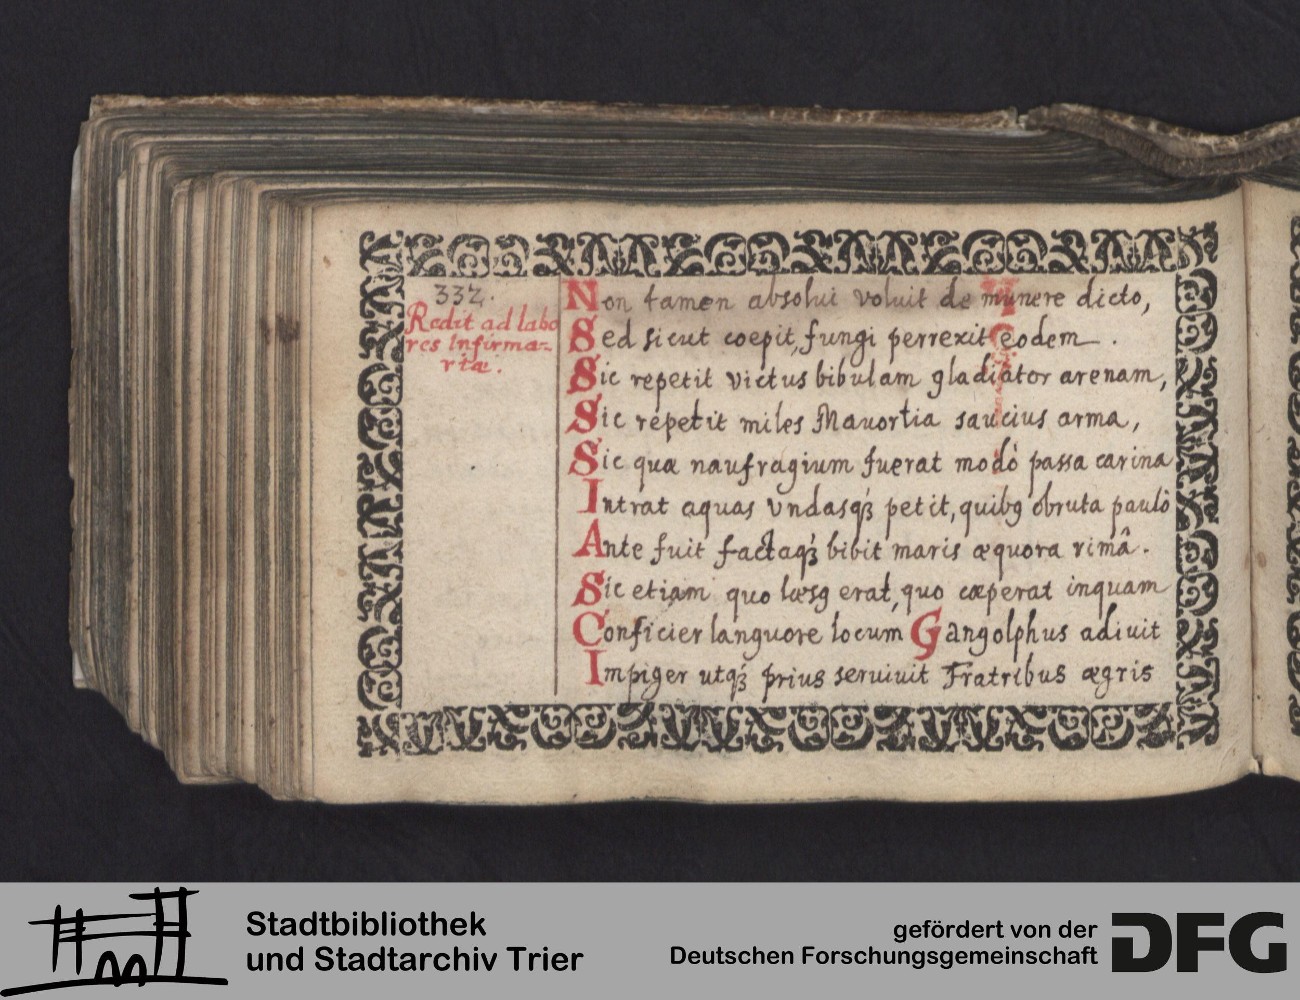 332.
Redit ad labo
res Infirma-
riæ.
Non tamen absolui voluit de munere dicto,
Sed sicut coepit, fungi perrexit eodem.
Sic repetit victus bibulam gladiator arenam,
Sic repetit miles Mauortia saucius arma,
Sic quæ naufragium fuerat modò passa carina
Intrat aquas vndasqꝫ petit, quibꝰ obruta paulò
Ante fuit factaqꝫ bibit maris æquora rimâ.
Sic etiam quo læsꝰ erat, quo cæperat inquam
Conficier languore locum Gangolphus adiuit
Impiger utqꝫ prius seruiuit Fratribus ægris
Stadtbibliothek
und Stadtarchiv Trier
gefördert von der
Deutschen Forschungsgemeinschaft
DFG